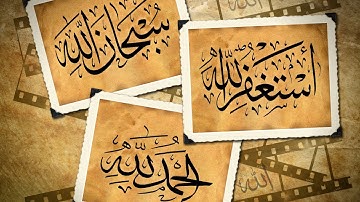 سبحان الله
أستغفر الله
الحمد لله